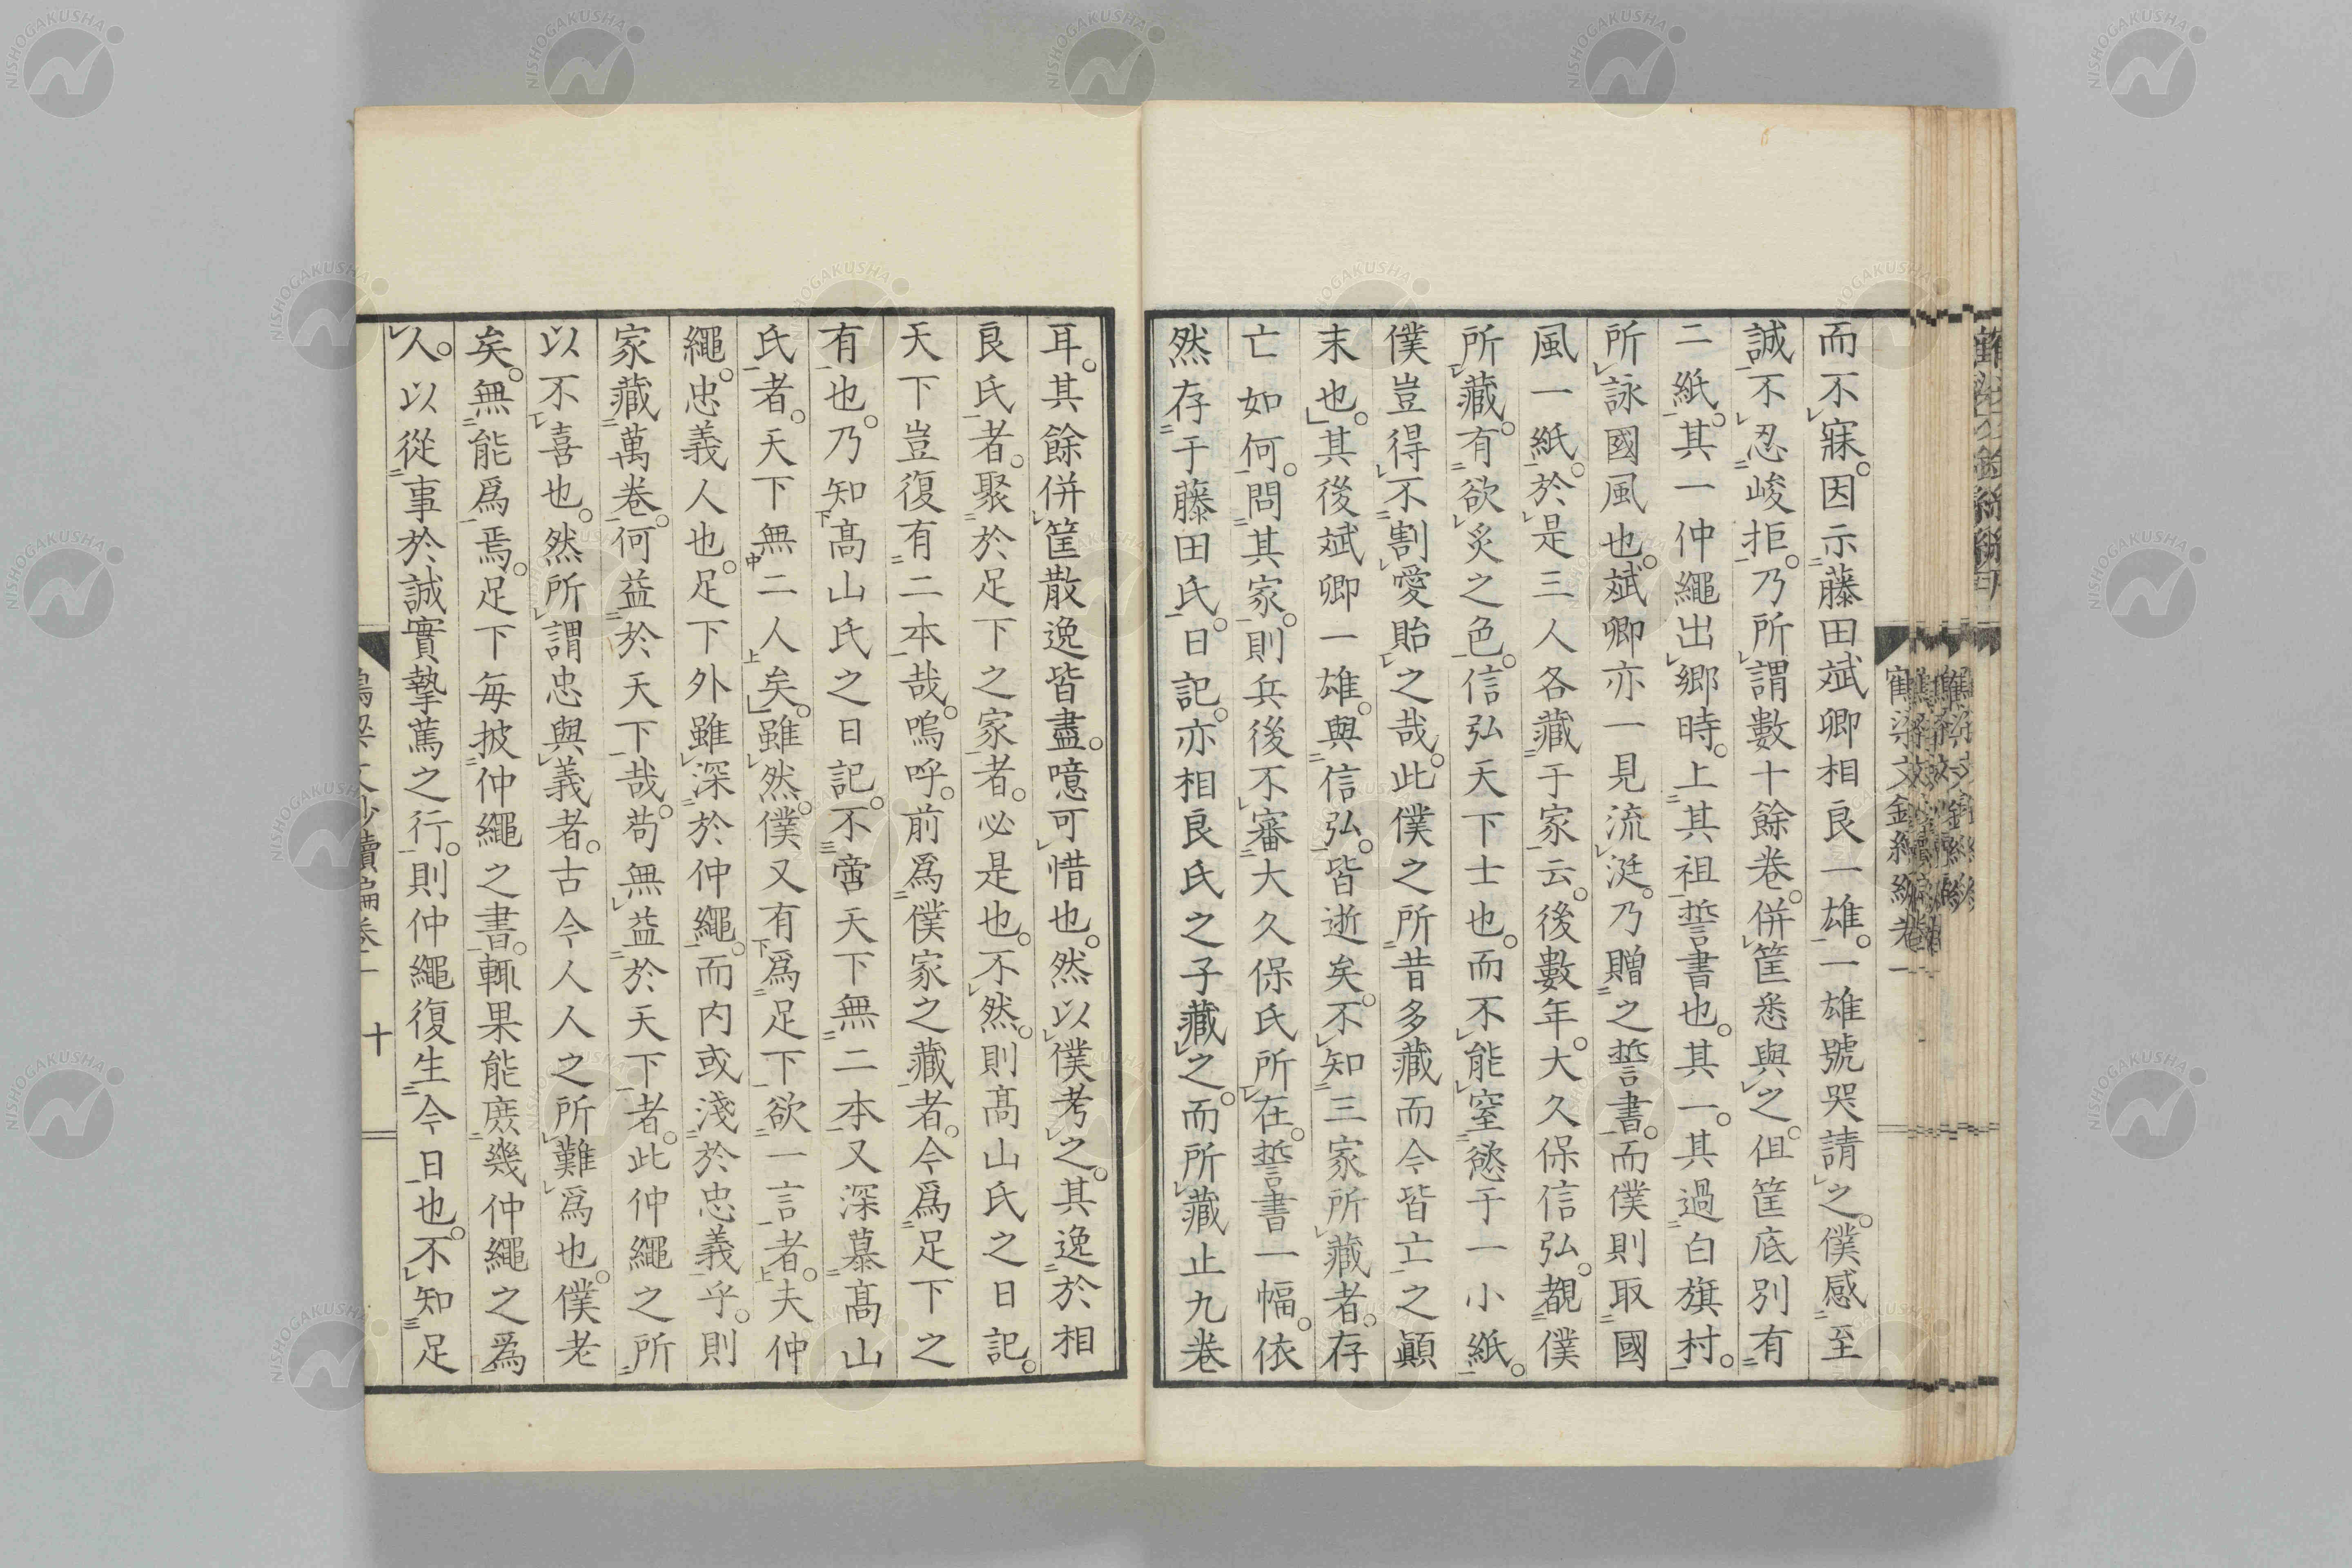 而不寐。因示藤田斌卿相良一雄。一雄號哭請之。僕感至
誠不忍峻拒。乃所謂數十餘卷。併筐悉與之。但筐底別有
二紙。其一仲繩出鄉時。上其祖誓書也。其一。其過白旗村。
所詠國風也。斌卿亦一見流涎。乃贈之誓書。而僕則取國
風一紙。於是三人各藏于家云。後數年。大久保信弘。覩僕
所藏。有欲炙之色。信弘天下士也。而不能窒慾于一小紙。
僕豈得不割愛貽之哉。此僕之所昔多藏而今皆亡之顚
末也。其後斌卿一雄。與信弘。皆逝矣。不知三家所藏者。存
亡如何。問其家。則兵後不審大久保氏所在。誓書一幅。依
然存于藤田氏。日記。亦相良氏之子藏之。而所藏止九卷
耳。其餘併筐散逸皆盡。噫可惜也。然以僕考之。其逸於相
良氏者。聚於足下之家者。必是也。不然。則髙山氏之日記。
天下豈復有二本哉。嗚呼。前爲僕家之藏者。今爲足下之
有也。乃知髙山氏之日記。不啻天下無二本。又深慕髙山
氏者。天下無二人矣。雖然。僕又有爲足下欲一言者。夫仲
繩。忠義人也。足下外雖深於仲繩。而内或淺於忠義乎。則
家藏萬卷。何益於天下哉。苟無益於天下者。此仲繩之所
以不喜也。然所謂忠與義者。古今人人之所難爲也。僕老
矣。無能爲焉。足下每披仲繩之書。輒果能庶幾仲繩之爲
人。以從事於誠實摯篤之行。則仲繩復生今日也。不知足
十
NISHOGAKUSHA